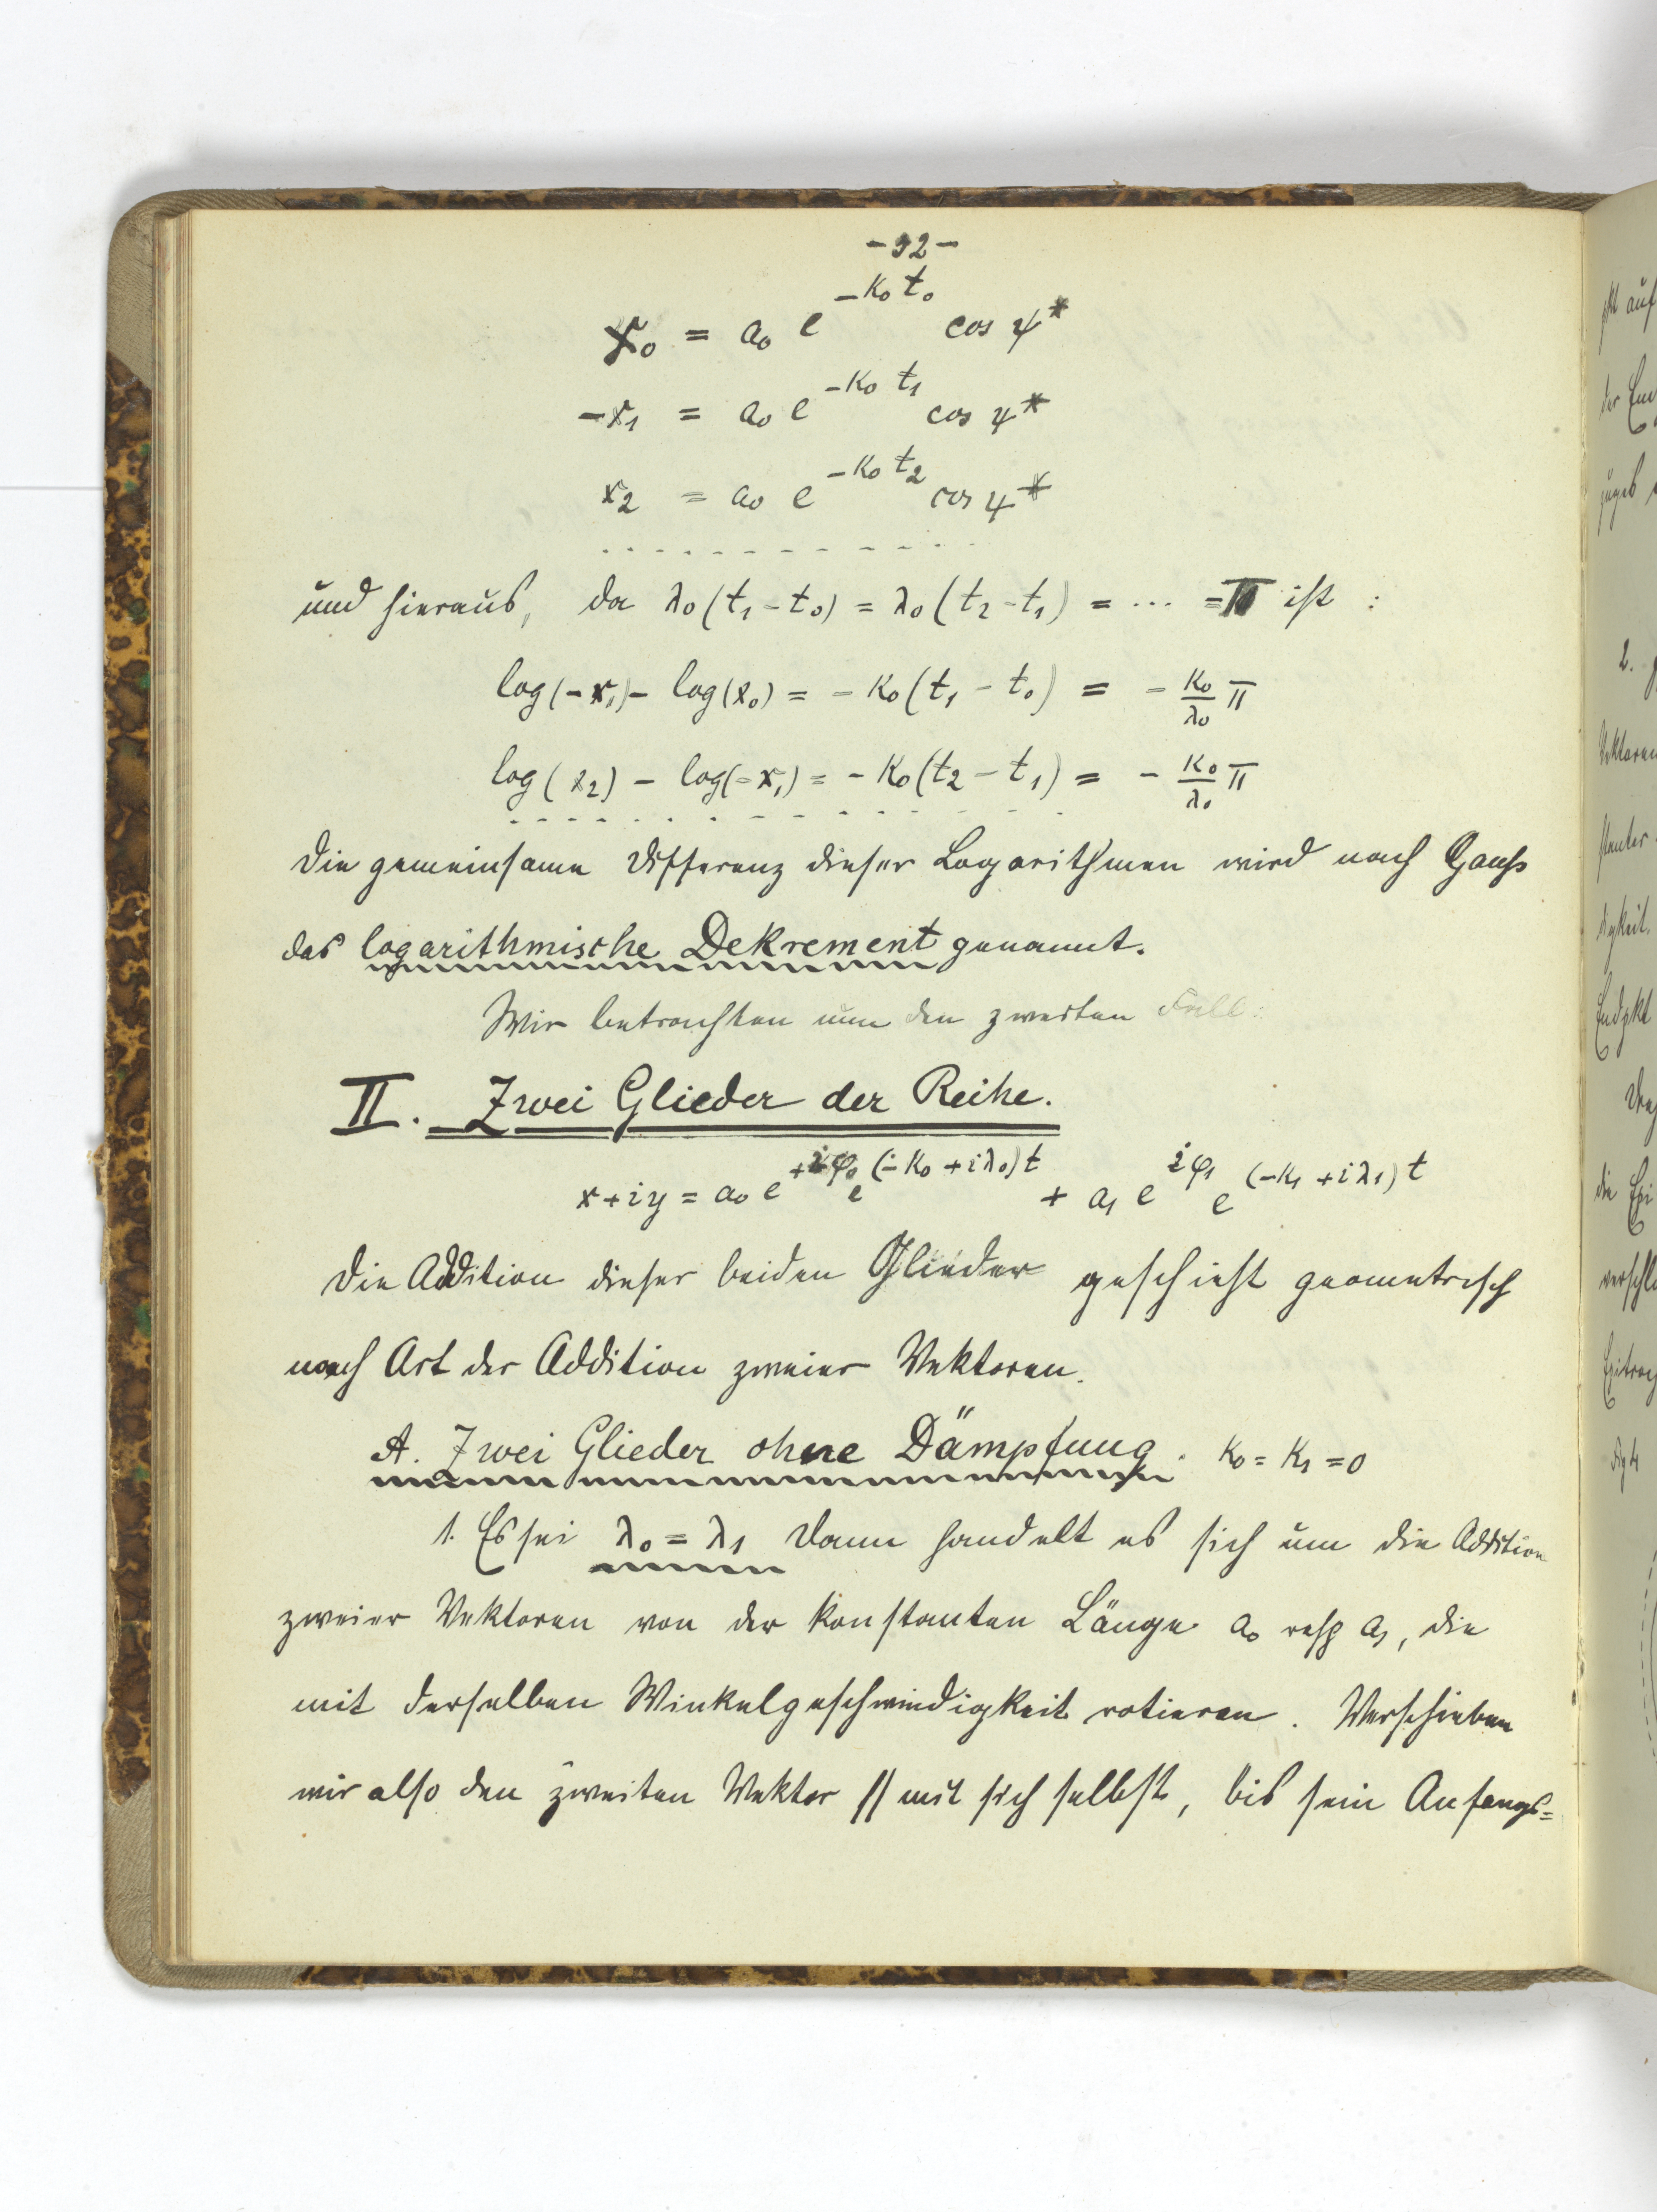 -32-
x₀ = a₀ e^{-κ₀ t₀} cos ψ*
-x₁ = a₀ e^{-κ₀ t₁} cos ψ*
x₂ = a₀ e^{-κ₀ t₂} cos ψ*
. . . . . . . . . . . .
und hieraus, da λ₀(t₁-t₀) = λ₀(t₂-t₁) = ... = π ist :
log(-x₁) - log(x₀) = -κ₀(t₁-t₀) = - κ₀/λ₀ π
log(x₂) - log(-x₁) = -κ₀(t₂-t₁) = - κ₀/λ₀ π
. . . . . . . . . . . . . .
Die gemeinsame Differenz dieser Logarithmen wird nach Gauß
das logarithmische Dekrement genannt.
Wir betrachten nun den zweiten Fall:
II. Zwei Glieder der Reihe.
x+iy = a₀ e^{+iφ₀} e^{(-κ₀+iλ₀)t} + a₁ e^{iφ₁} e^{(-κ₁+iλ₁)t}
Die Addition dieser beiden Glieder geschieht geometrisch
nach Art der Addition zweier Vektoren.
A. Zwei Glieder ohne Dämpfung. κ₀ = κ₁ = 0
1. Es sei λ₀ = λ₁ Dann handelt es sich um die Addition
zweier Vektoren von der konstanten Länge a₀ resp a₁, die
mit derselben Winkelgeschwindigkeit rotieren. Verschieben
wir also den zweiten Vektor // mit sich selbst, bis sein Anfangs=